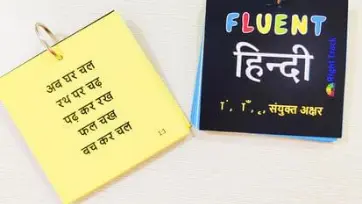 अब घर चल
रथ पर चढ़
पढ़ कर रख
फल चख
बच कर चल
FLUENT
हिन्दी
संयुक्त अक्षर
Right Track